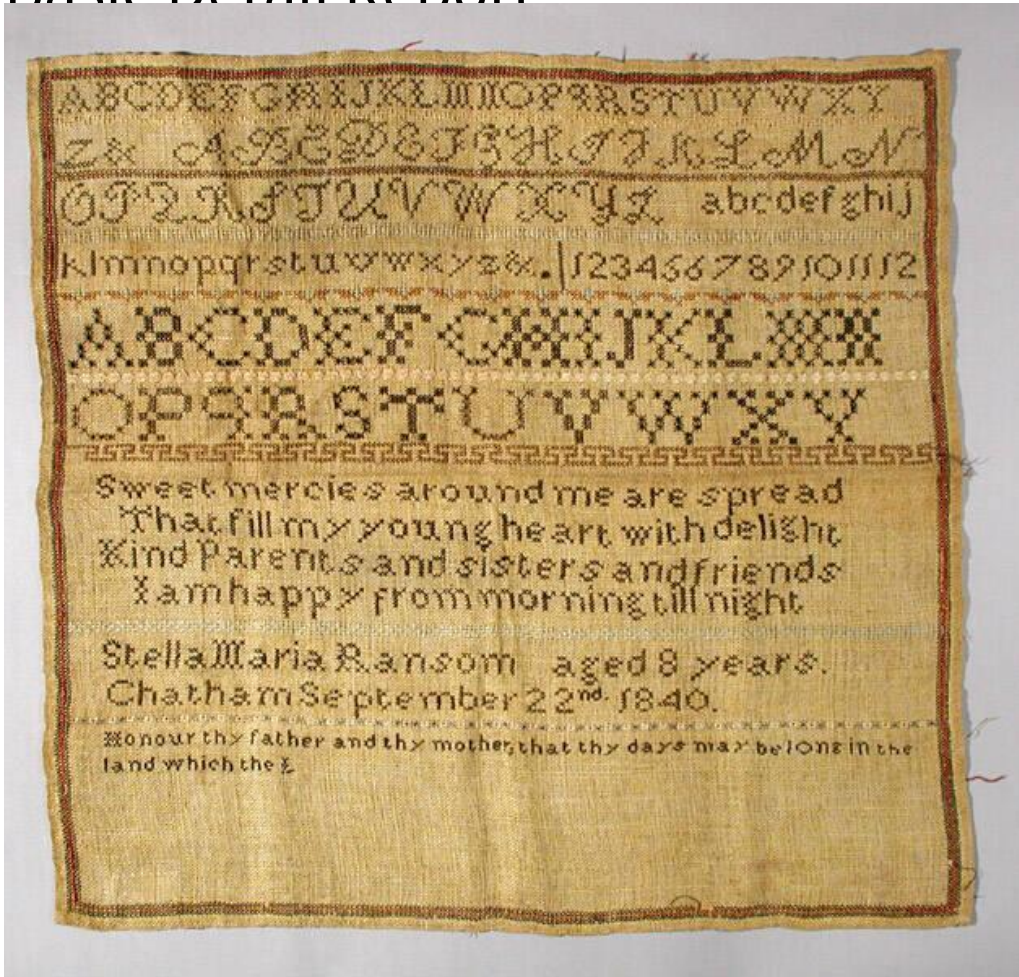 A B C D E F G H I J K L M N O P Q R S T U V W X Y
Z & A B C D E F G H I J K L M N
O P Q R S T U V W X Y Z a b c d e f g h i j
k l m n o p q r s t u v w x y z &. | 1 2 3 4 5 6 7 8 9 10 11 12
A B C D E F G H I J K L M N
O P Q R S T U V W X Y
Sweet mercies around me are spread
That fill my young heart with delight
Kind Parents and sisters and friends
I am happy from morning till night
Stella Maria Ransom aged 8 years.
Chatham September 22nd. 1840.
Honour thy father and thy mother, that thy days may be long in the
land which the L